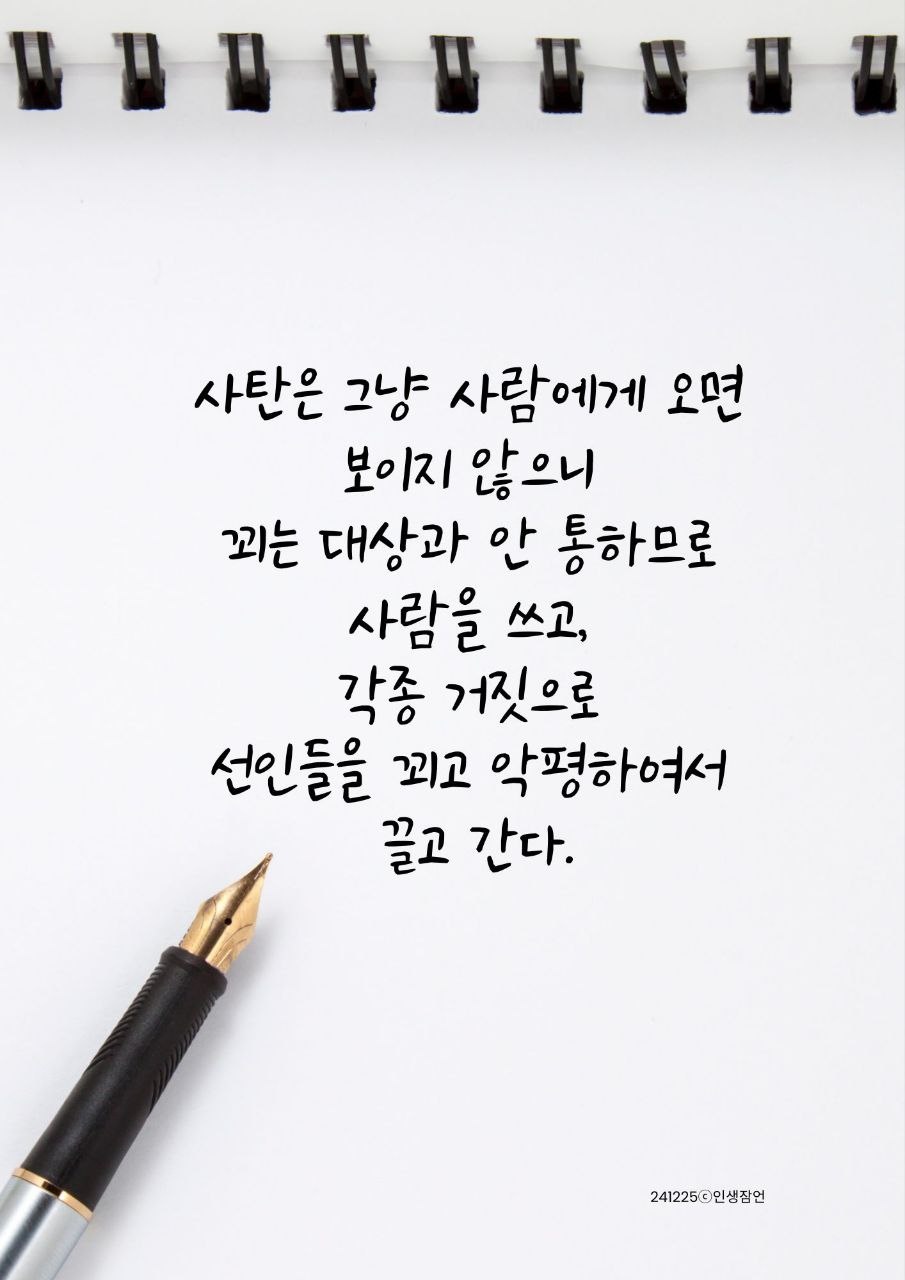 사탄은 그냥 사람에게 오면
보이지 않으니
꾀는 대상과 안 통하므로
사람을 쓰고,
각종 거짓으로
선인들을 꾀고 악평하여서
끌고 간다.
241225ⓒ인생잠언